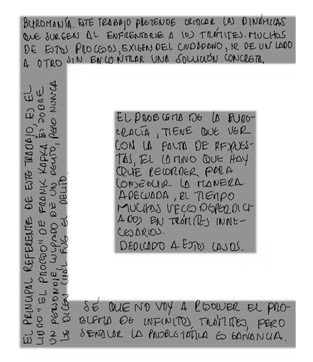 BUROMANÍA. ESTE TRABAJO PRETENDE CRITICAR LAS DINÁMICAS
QUE SURGEN AL ENFRENTARSE A LOS TRÁMITES. MUCHOS
DE ESTOS PROCESOS, EXIGEN DEL CIUDADANO, IR DE UN LADO
A OTRO SIN ENCONTRAR UNA SOLUCIÓN CONCRETA.
EL PRINCIPAL REFERENTE DE ESTE TRABAJO, ES EL
LIBRO "EL PROCESO" DE FRANK KAFKA. ES SOBRE
UN PERSONAJE, CULPADO DE UN DELITO, PERO NUNCA
LE DICEN CUAL FUE EL DELITO.
EL PROBLEMA DE LA BURO-
CRACIA, TIENE QUE VER
CON LA FALTA DE RESPUES-
TAS, EL CAMINO QUE HAY
QUE RECORRER PARA
CONSEGUIR LA MANERA
ADECUADA, EL TIEMPO
MUCHAS VECES DESPERDICI-
ADO, EN TRÁMITES INNE-
CESARIOS.
DEDICADO A ESTOS CASOS.
SÉ QUE NO VOY A RESOLVER EL PRO-
BLEMA DE INFINITOS TRÁMITES, PERO
SEÑALAR LA PROBLEMÁTICA ES GANANCIA.